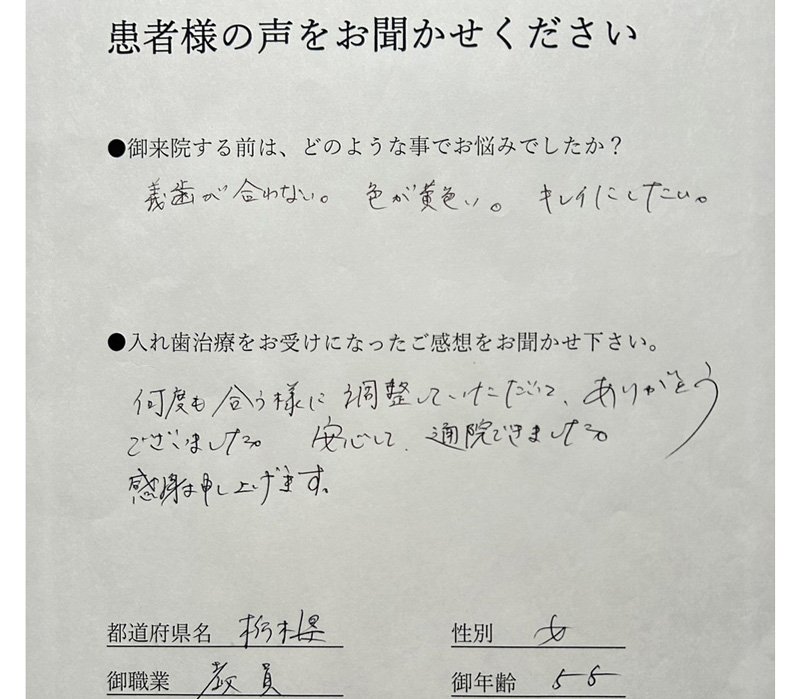 患者様の声をお聞かせください
●御来院する前は、どのような事でお悩みでしたか？
義歯が合わない。 色が黄色い。 キレイにしたい。
●入れ歯治療をお受けになったご感想をお聞かせ下さい。
何度も合う様に調整していただいて、ありがとう
ございました。 安心して、通院できました。
感謝申し上げます。
都道府県名 栃木県 性別 女
御職業 教員 御年齢 55